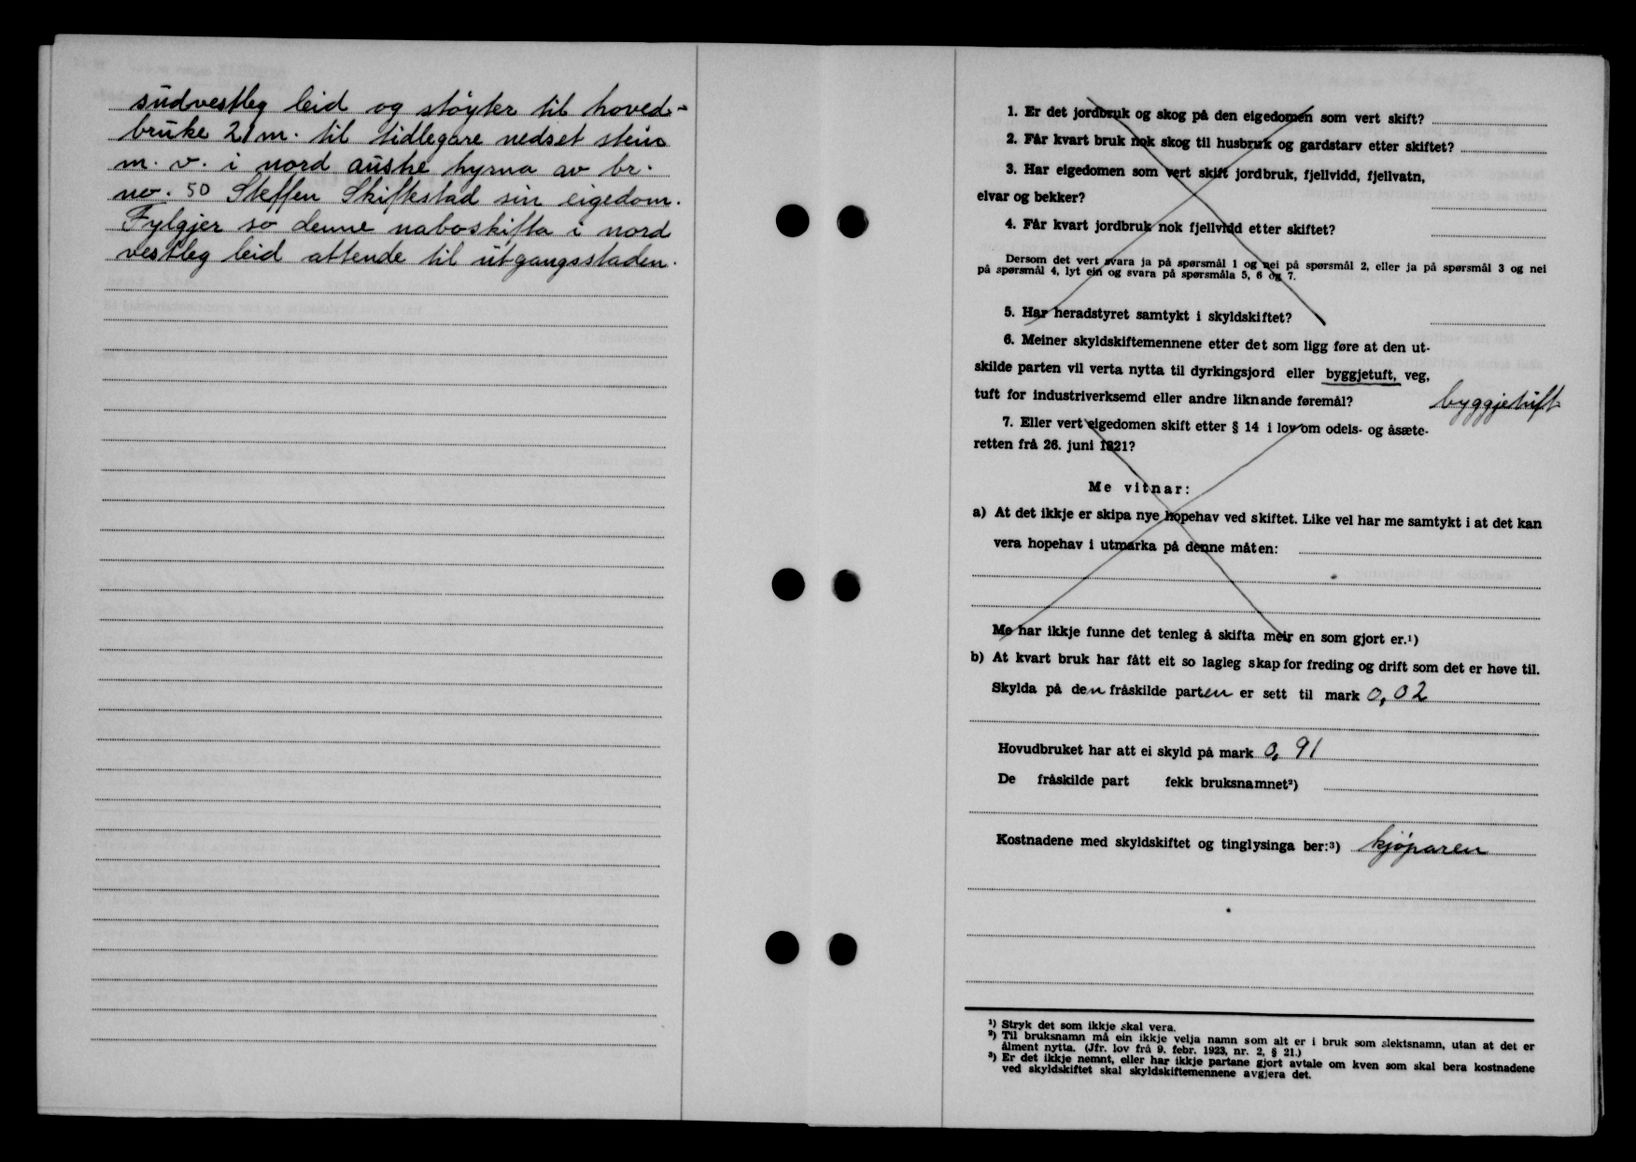 sudvestleg leid og støyter til hoved-
bruke 21 m. til tidlegare nedset stein
m. v. i nord austre hyrna av br.
no. 50 Steffen Skiftestad sin eigedom.
Fylgjer so denne naboskifta i nord
vestleg leid attende til utgangsstaden.
1. Er det jordbruk og skog på den eigedomen som vert skift?
2. Får kvart bruk nok skog til husbruk og gardstarv etter skiftet?
3. Har eigedomen som vert skift jordbruk, fjellvidd, fjellvatn,
elvar og bekker?
4. Får kvart jordbruk nok fjellvidd etter skiftet?
Dersom det vert svara ja på spørsmål 1 og nei på spørsmål 2, eller ja på spørsmål 3 og nei
på spørsmål 4, lyt ein og svara på spørsmåla 5, 6 og 7.
5. Har heradstyret samtykt i skyldskiftet?
6. Meiner skyldskiftemennene etter det som ligg føre at den ut-
skilde parten vil verta nytta til dyrkingsjord eller byggjetuft, veg,
tuft for industriverksemd eller andre liknande føremål? byggjetuft
7. Eller vert eigedomen skift etter § 14 i lov om odels- og åsæte-
retten frå 26. juni 1821?
Me vitnar:
a) At det ikkje er skipa nye hopehav ved skiftet. Like vel har me samtykt i at det kan
vera hopehav i utmarka på denne måten:
Me har ikkje funne det tenleg å skifta meir en som gjort er.¹)
b) At kvart bruk har fått eit so lagleg skap for freding og drift som det er høve til.
Skylda på den fråskilde parten er sett til mark 0,02
Hovudbruket har att ei skyld på mark 0,91
De fråskilde part fekk bruksnamnet²)
Kostnadene med skyldskiftet og tinglysinga ber:³) kjøparen
¹) Stryk det som ikkje skal vera.
²) Til bruksnamn må ein ikkje velja namn som alt er i bruk som slektsnamn, utan at det er
ålment nytta. (Jfr. lov frå 9. febr. 1923, nr. 2, § 21.)
³) Er det ikkje nemnt, eller har ikkje partane gjort avtale om kven som skal bera kostnadene
ved skyldskiftet skal skyldskiftemennene avgjera det.